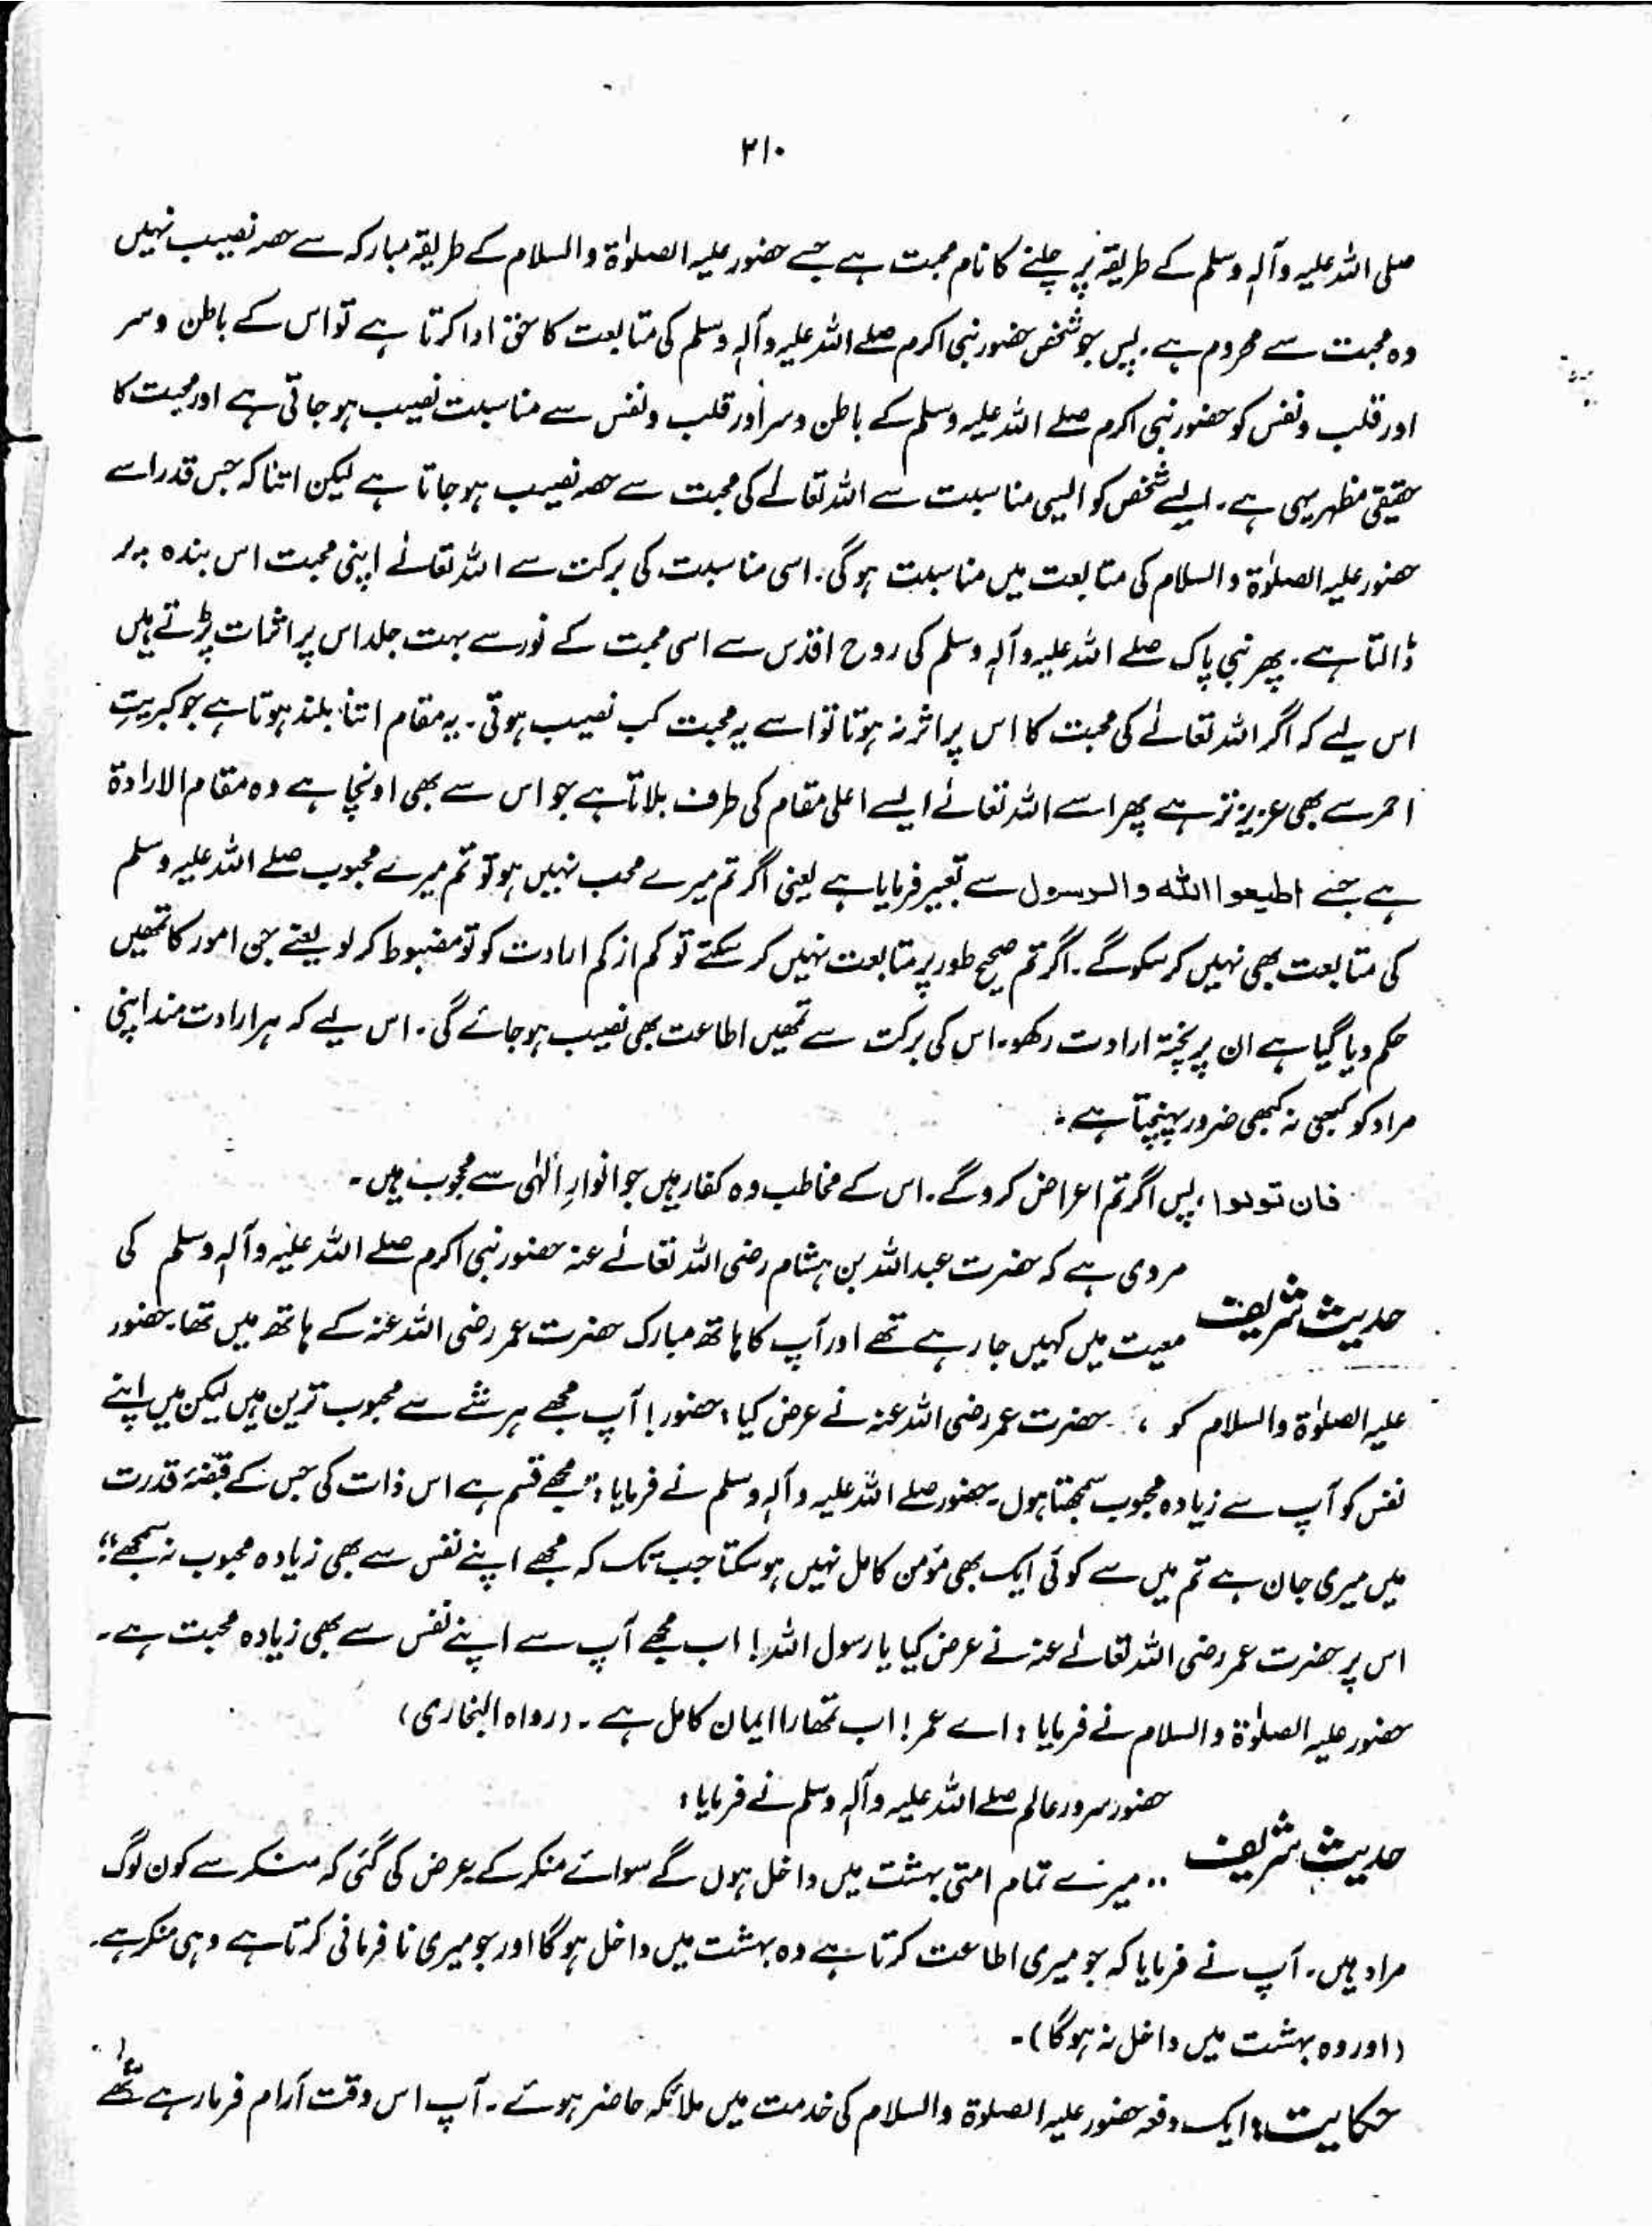 ۲۱۰
صلی اللہ علیہ وآلہٖ وسلم کے طریقہ پر چلنے کا نام محبت ہے جسے حضور علیہ الصلوٰۃ والسلام کے طریقہ مبارکہ سے حصہ نصیب نہیں
وہ محبت سے محروم ہے۔ پس جو شخص حضور نبی اکرم صلے اللہ علیہ وآلہٖ وسلم کی متابعت کا حق ادا کرتا ہے تو اس کے باطن وسر
اور قلب ونفس کو حضور نبی اکرم صلے اللہ علیہ وسلم کے باطن وسر اور قلب ونفس سے مناسبت نصیب ہو جاتی ہے اور محبت کا
حقیقی مظہر یہی ہے۔ ایسے شخص کو ایسی مناسبت سے اللہ تعالےٰ کی محبت سے حصہ نصیب ہو جاتا ہے لیکن اتنا کہ جس قدر اسے
حضور علیہ الصلوٰۃ والسلام کی متابعت میں مناسبت ہوگی۔ اسی مناسبت کی برکت سے اللہ تعالےٰ اپنی محبت اس بندہ پر
ڈالتا ہے۔ پھر نبی پاک صلے اللہ علیہ وآلہٖ وسلم کی روح اقدس سے اسی محبت کے نور سے بہت جلد اس پر اثرات پڑتے ہیں
اس لیے کہ اگر اللہ تعالےٰ کی محبت کا اس پر اثر نہ ہوتا تو اسے یہ محبت کب نصیب ہوتی۔ یہ مقام اتنا بلند ہوتا ہے جو کبریتِ
احمر سے بھی عزیز تر ہے پھر اسے اللہ تعالےٰ ایسے اعلی مقام کی طرف بلاتا ہے جو اس سے بھی اونچا ہے وہ مقام الارادۃ
ہے جسے اطیعوا اللہ والرسول سے تعبیر فرمایا ہے یعنی اگر تم میرے محب نہیں ہو تو تم میرے محبوب صلے اللہ علیہ وسلم
کی متابعت بھی نہیں کر سکوگے۔ اگر تم صحیح طور پر متابعت نہیں کر سکتے تو کم از کم ارادت کو تو مضبوط کر لو یعنے جن امور کا تمھیں
حکم دیا گیا ہے ان پر پختہ ارادت رکھو۔ اس کی برکت سے تمھیں اطاعت بھی نصیب ہو جائے گی۔ اس لیے کہ ہر ارادت مند اپنی
مراد کو کبھی نہ کبھی ضرور پہنچتا ہے۔
فان تولوا، پس اگر تم اعراض کرو گے۔ اس کے مخاطب وہ کفار ہیں جو انوارِ الٰہی سے محجوب ہیں۔
حدیث شریف مروی ہے کہ حضرت عبداللہ بن ہشام رضی اللہ تعالےٰ عنہ حضور نبی اکرم صلے اللہ علیہ وآلہٖ وسلم کی
معیت میں کہیں جا رہے تھے اور آپ کا ہاتھ مبارک حضرت عمر رضی اللہ عنہ کے ہاتھ میں تھا۔ حضور
علیہ الصلوٰۃ والسلام کو ، حضرت عمر رضی اللہ عنہ نے عرض کیا: حضور! آپ مجھے ہر شے سے محبوب ترین ہیں لیکن میں اپنے
نفس کو آپ سے زیادہ محبوب سمجھتا ہوں۔ حضور صلے اللہ علیہ وآلہٖ وسلم نے فرمایا: "مجھے قسم ہے اس ذات کی جس کے قبضۂ قدرت
میں میری جان ہے تم میں سے کوئی ایک بھی مؤمن کامل نہیں ہو سکتا جب تک کہ مجھے اپنے نفس سے بھی زیادہ محبوب نہ سمجھے"؛
اس پر حضرت عمر رضی اللہ تعالےٰ عنہ نے عرض کیا یا رسول اللہ! اب مجھے آپ سے اپنے نفس سے بھی زیادہ محبت ہے۔
حضور علیہ الصلوٰۃ والسلام نے فرمایا: اے عمر! اب تمھارا ایمان کامل ہے۔ (رواہ البخاری)
حضور سرور عالم صلے اللہ علیہ وآلہٖ وسلم نے فرمایا:
حدیث شریف میرے تمام امتی بہشت میں داخل ہوں گے سوائے منکر کے۔ عرض کی گئی کہ منکر سے کون لوگ
مراد ہیں۔ آپ نے فرمایا کہ جو میری اطاعت کرتا ہے وہ بہشت میں داخل ہوگا اور جو میری نافرمانی کرتا ہے وہی منکر ہے۔
(اور وہ بہشت میں داخل نہ ہوگا)۔
حکایت: ایک دفعہ حضور علیہ الصلوۃ والسلام کی خدمت میں ملائکہ حاضر ہوئے۔ آپ اس وقت آرام فرما رہے تھے